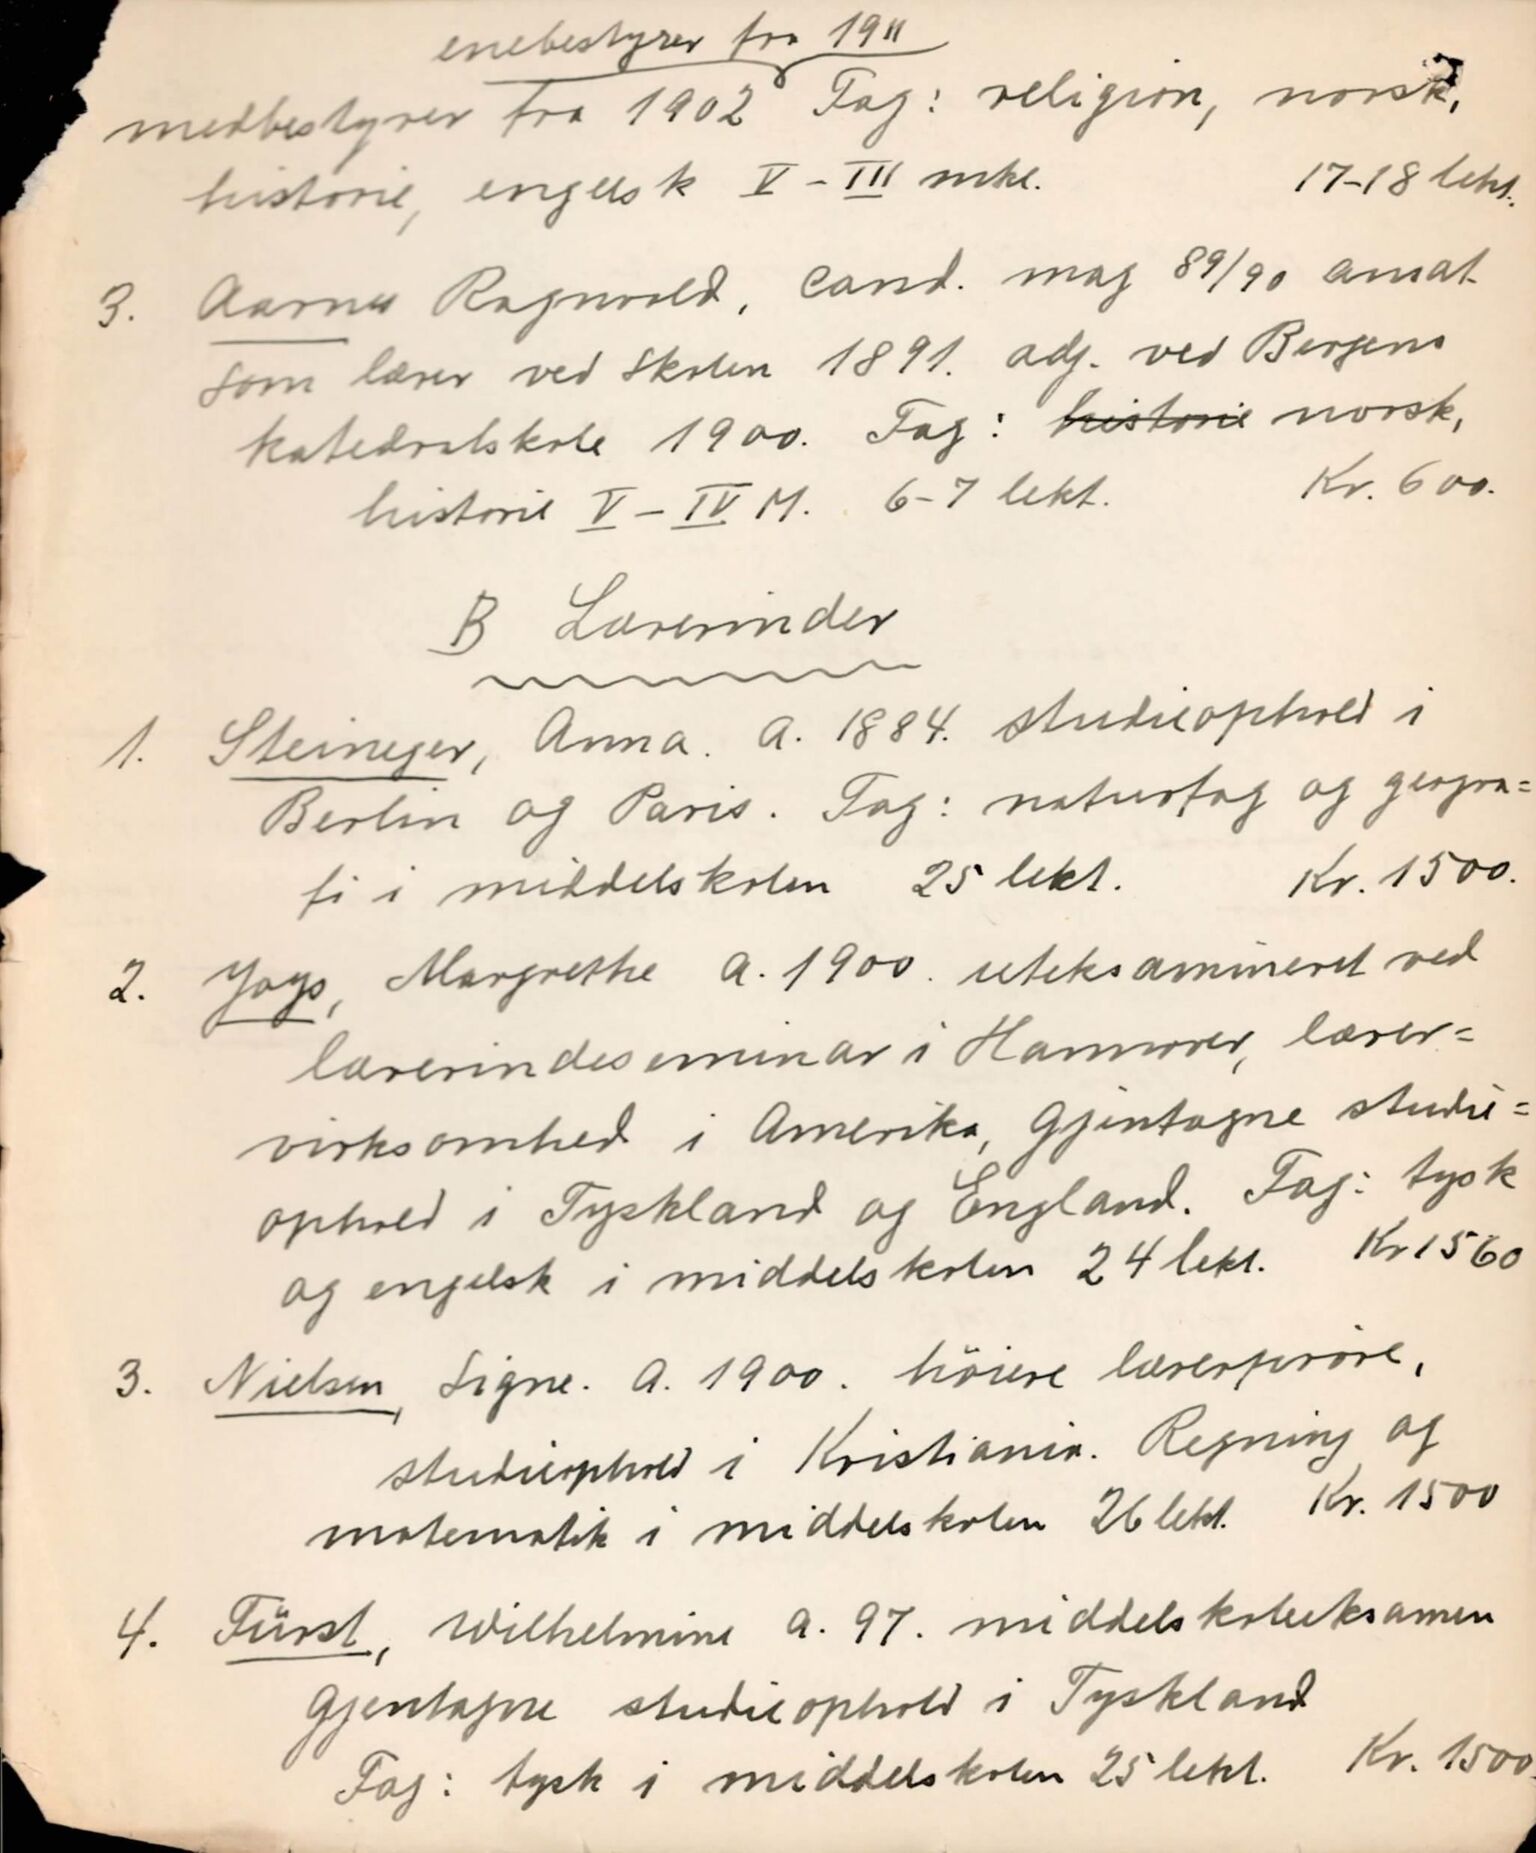 enebestyrer fra 1911
medbestyrer fra 1902 Fag: religion, norsk,
historie, engelsk V - III mkl. 17-18 lekt.
3. Aarnes Ragnvald, cand. mag 89/90 ansat
som lærer ved skolen 1891. adj. ved Bergens
katedralskole 1900. Fag: historie norsk,
historie V - IV M. 6-7 lekt. Kr. 600.
B Lærerinder
1. Steineger, Anna. a. 1884. studieophold i
Berlin og Paris. Fag: naturfag og geogra=
fi i middelskolen 25 lekt. Kr. 1500.
2. Margrethe a. 1900. uteksamineret ved
lærerindeseminar i Hannover, lærer=
virksomhed i Amerika, gjentagne studie=
ophold i Tyskland og England. Fag: tysk
og engelsk i middelskolen 24 lekt. Kr 1560
3. Nielsen, Signe. a. 1900. höiere lærerprøve,
studieophold i Kristiania. Regning og
matematik i middelskolen 26 lekt. Kr. 1500
4. Fürst, Wilhelmine a. 97. middelskoleeksamen
gjentagne studieophold i Tyskland
Fag: tysk i middelskolen 25 lekt. Kr. 1500.